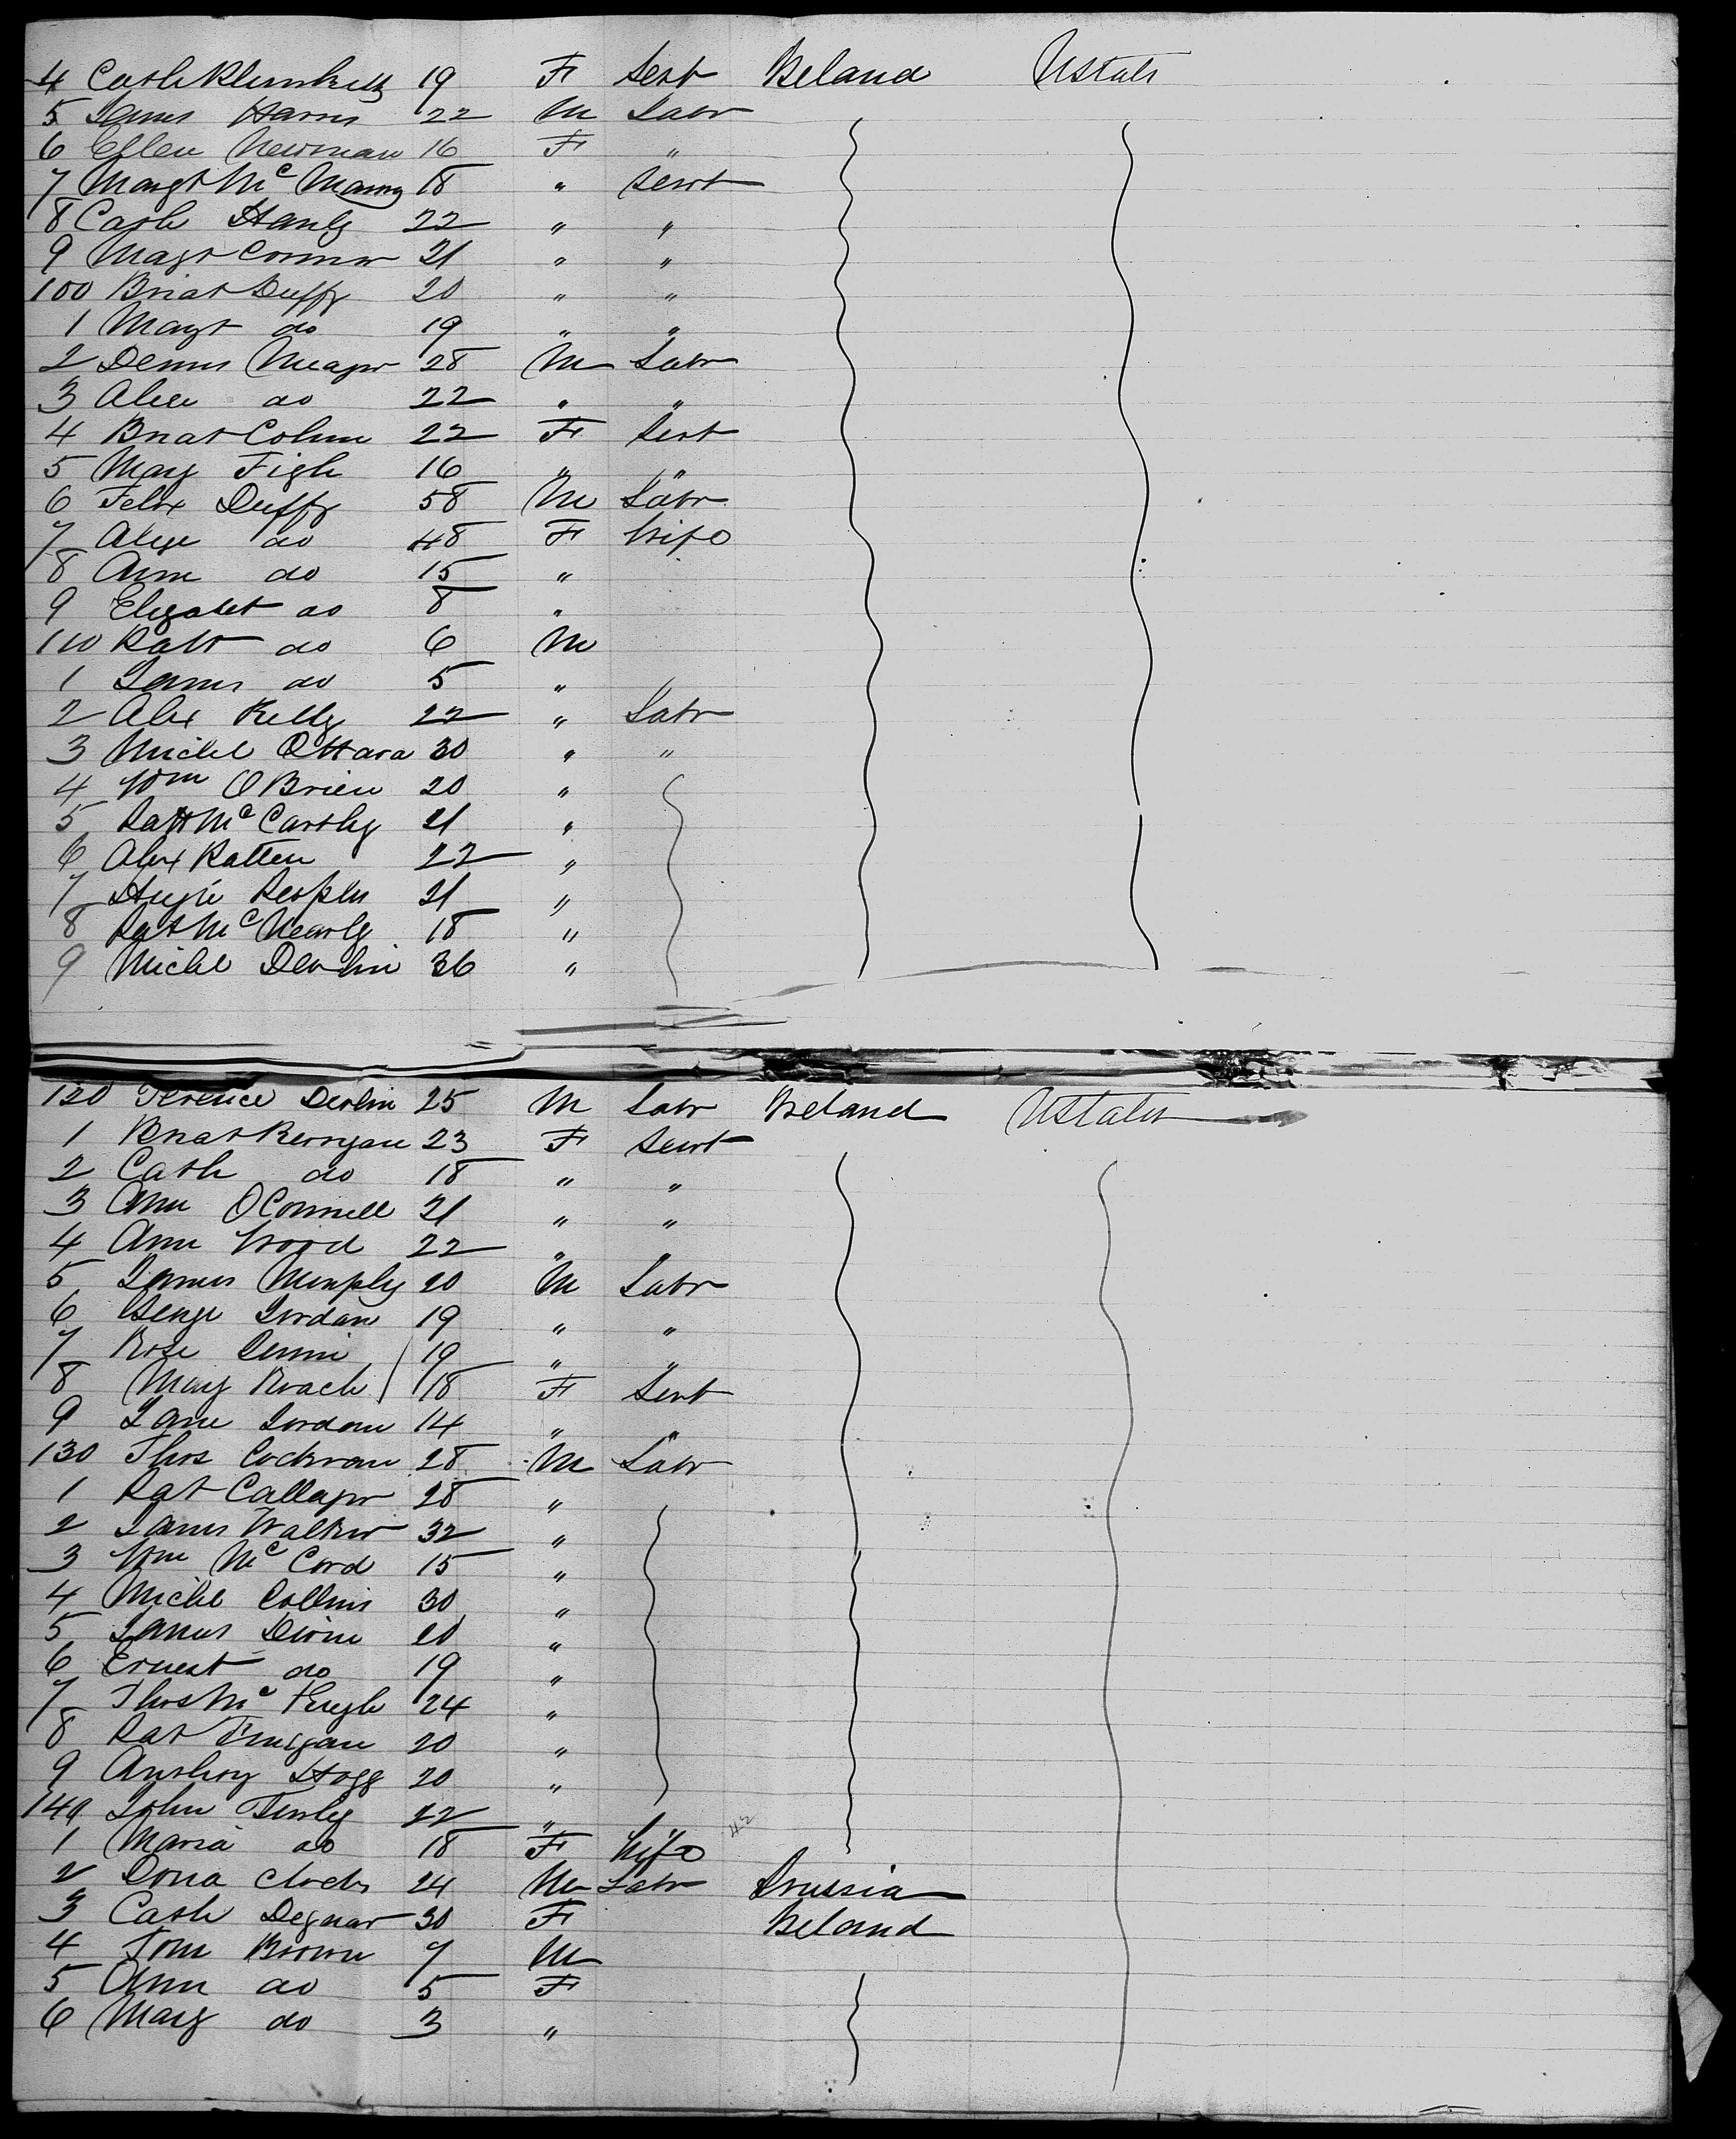 4 Cath Plunkett 19 F Servt Ireland UStates
5 James Harris 22 M Labr
6 Ellen Newman 16 F "
7 Margt Mc Manny 18 " Servt
8 Cath Hanly 22 " "
9 Magt Connor 21 " "
100 Briat Duffy 20 " "
1 Margt do 19 " "
2 Dennis Meagor 28 M Labr
3 Alice do 22 " "
4 Briat Colum 22 F Servt
5 Mary Figh 16 " "
6 Felix Duffy 58 M Labr
7 Alice do 48 F Wife
8 Ann do 15 "
9 Elizabet do 8 "
110 Robt do 6 M
1 James do 5 "
2 Alex Kelly 22 " Labr
3 Michl OHara 30 " "
4 Wm OBrien 20 "
5 Patt Mc Carthy 21 "
6 Alex Patten 22 "
7 Hugh Peoples 21 "
8 Pat Mc Nearly 18 "
9 Michl Devlin 36 "
120 Terence Devlin 25 M Labr Ireland UStates
1 Briat Kerrigan 23 F Servt
2 Cath do 18 " "
3 Ann OConnell 21 " "
4 Ann Wood 22 " "
5 James Murphy 20 M Labr
6 George Jordan 19 " "
7 Rose 19 " "
8 Mary Roach 18 F Servt
9 Jane Jordan 14 " "
130 Thos Cochran 28 M Labr
1 Pat Callagor 28 "
2 James Walker 32 "
3 Wm Mc Cord 15 "
4 Michl Collins 30 "
5 James Divine 20 "
6 Ernest do 19 "
7 Thos Mc Hugh 24 "
8 Pat Finigan 20 "
9 Anthony Hogg 20 "
140 John Finly 22 "
1 Maria do 18 F Wife
2 Dona 24 M Labr Prussia
3 Cath Degnar 30 F Ireland
4 Tom Brown 7 M
5 Ann do 5 F
6 Mary do 3 "